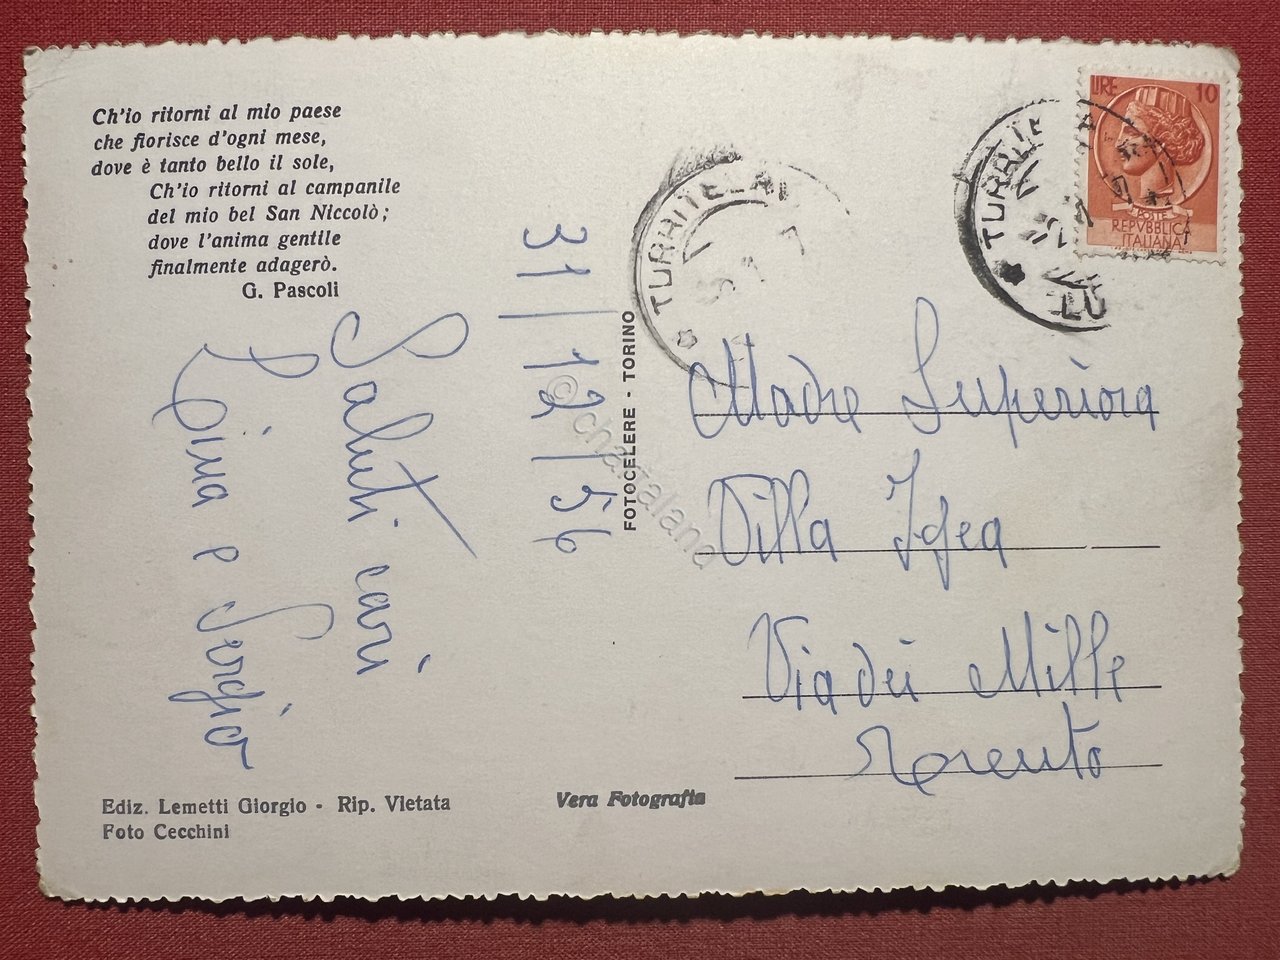 Ch'io ritorni al mio paese
che fiorisce d'ogni mese,
dove è tanto bello il sole,
Ch'io ritorni al campanile
del mio bel San Niccolò;
dove l'anima gentile
finalmente adagerò.
G. Pascoli
31/12/56
Saluti cari
Lina e Sergio
Ediz. Lemetti Giorgio - Rip. Vietata
Foto Cecchini
Vera Fotografia
FOTOCELERE - TORINO
© chatalano
TURRITE
TURRITE
LU
LIRE 10
POSTE
REPVBBLICA
ITALIANA
Madre Superiora
Villa Igea
Via dei Mille
Trento